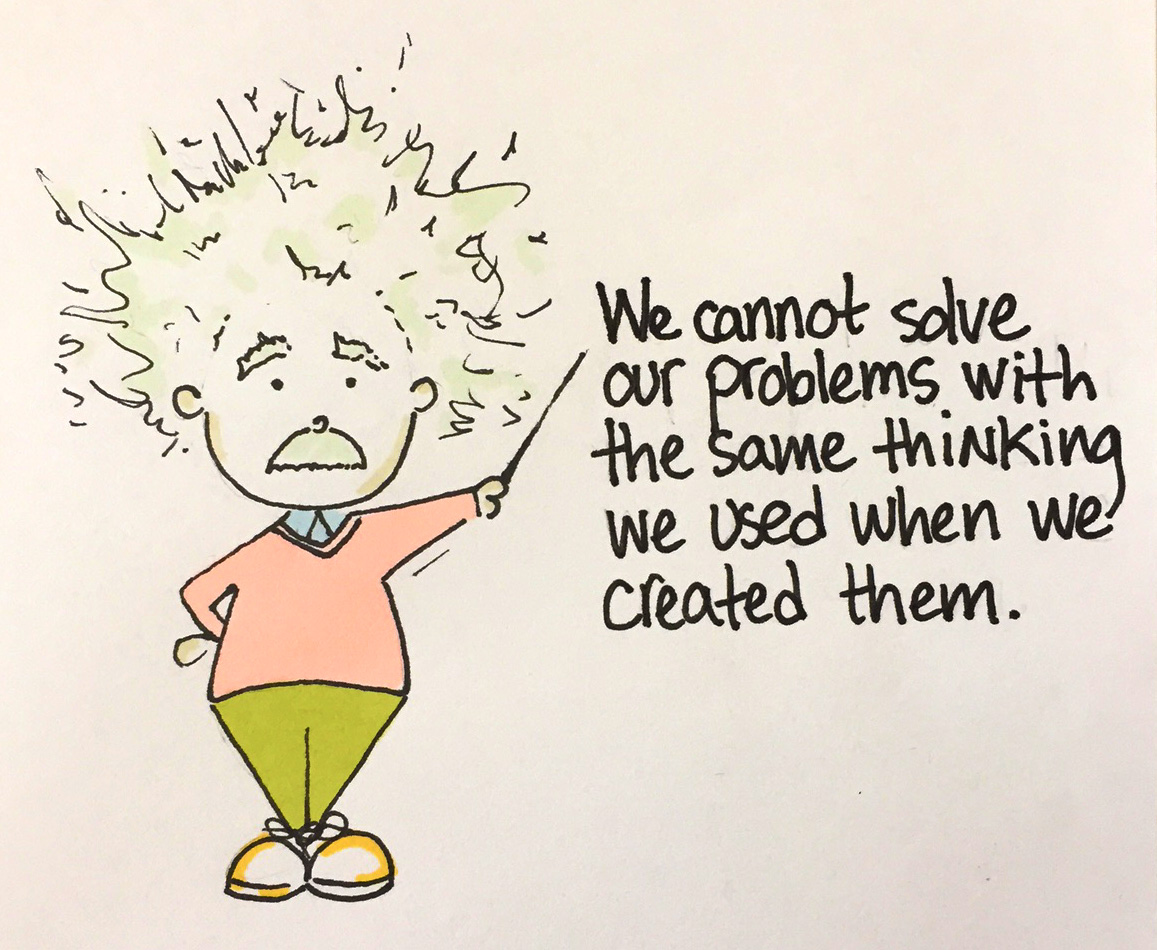 We cannot solve
our problems with
the same thinking
we used when we
created them.